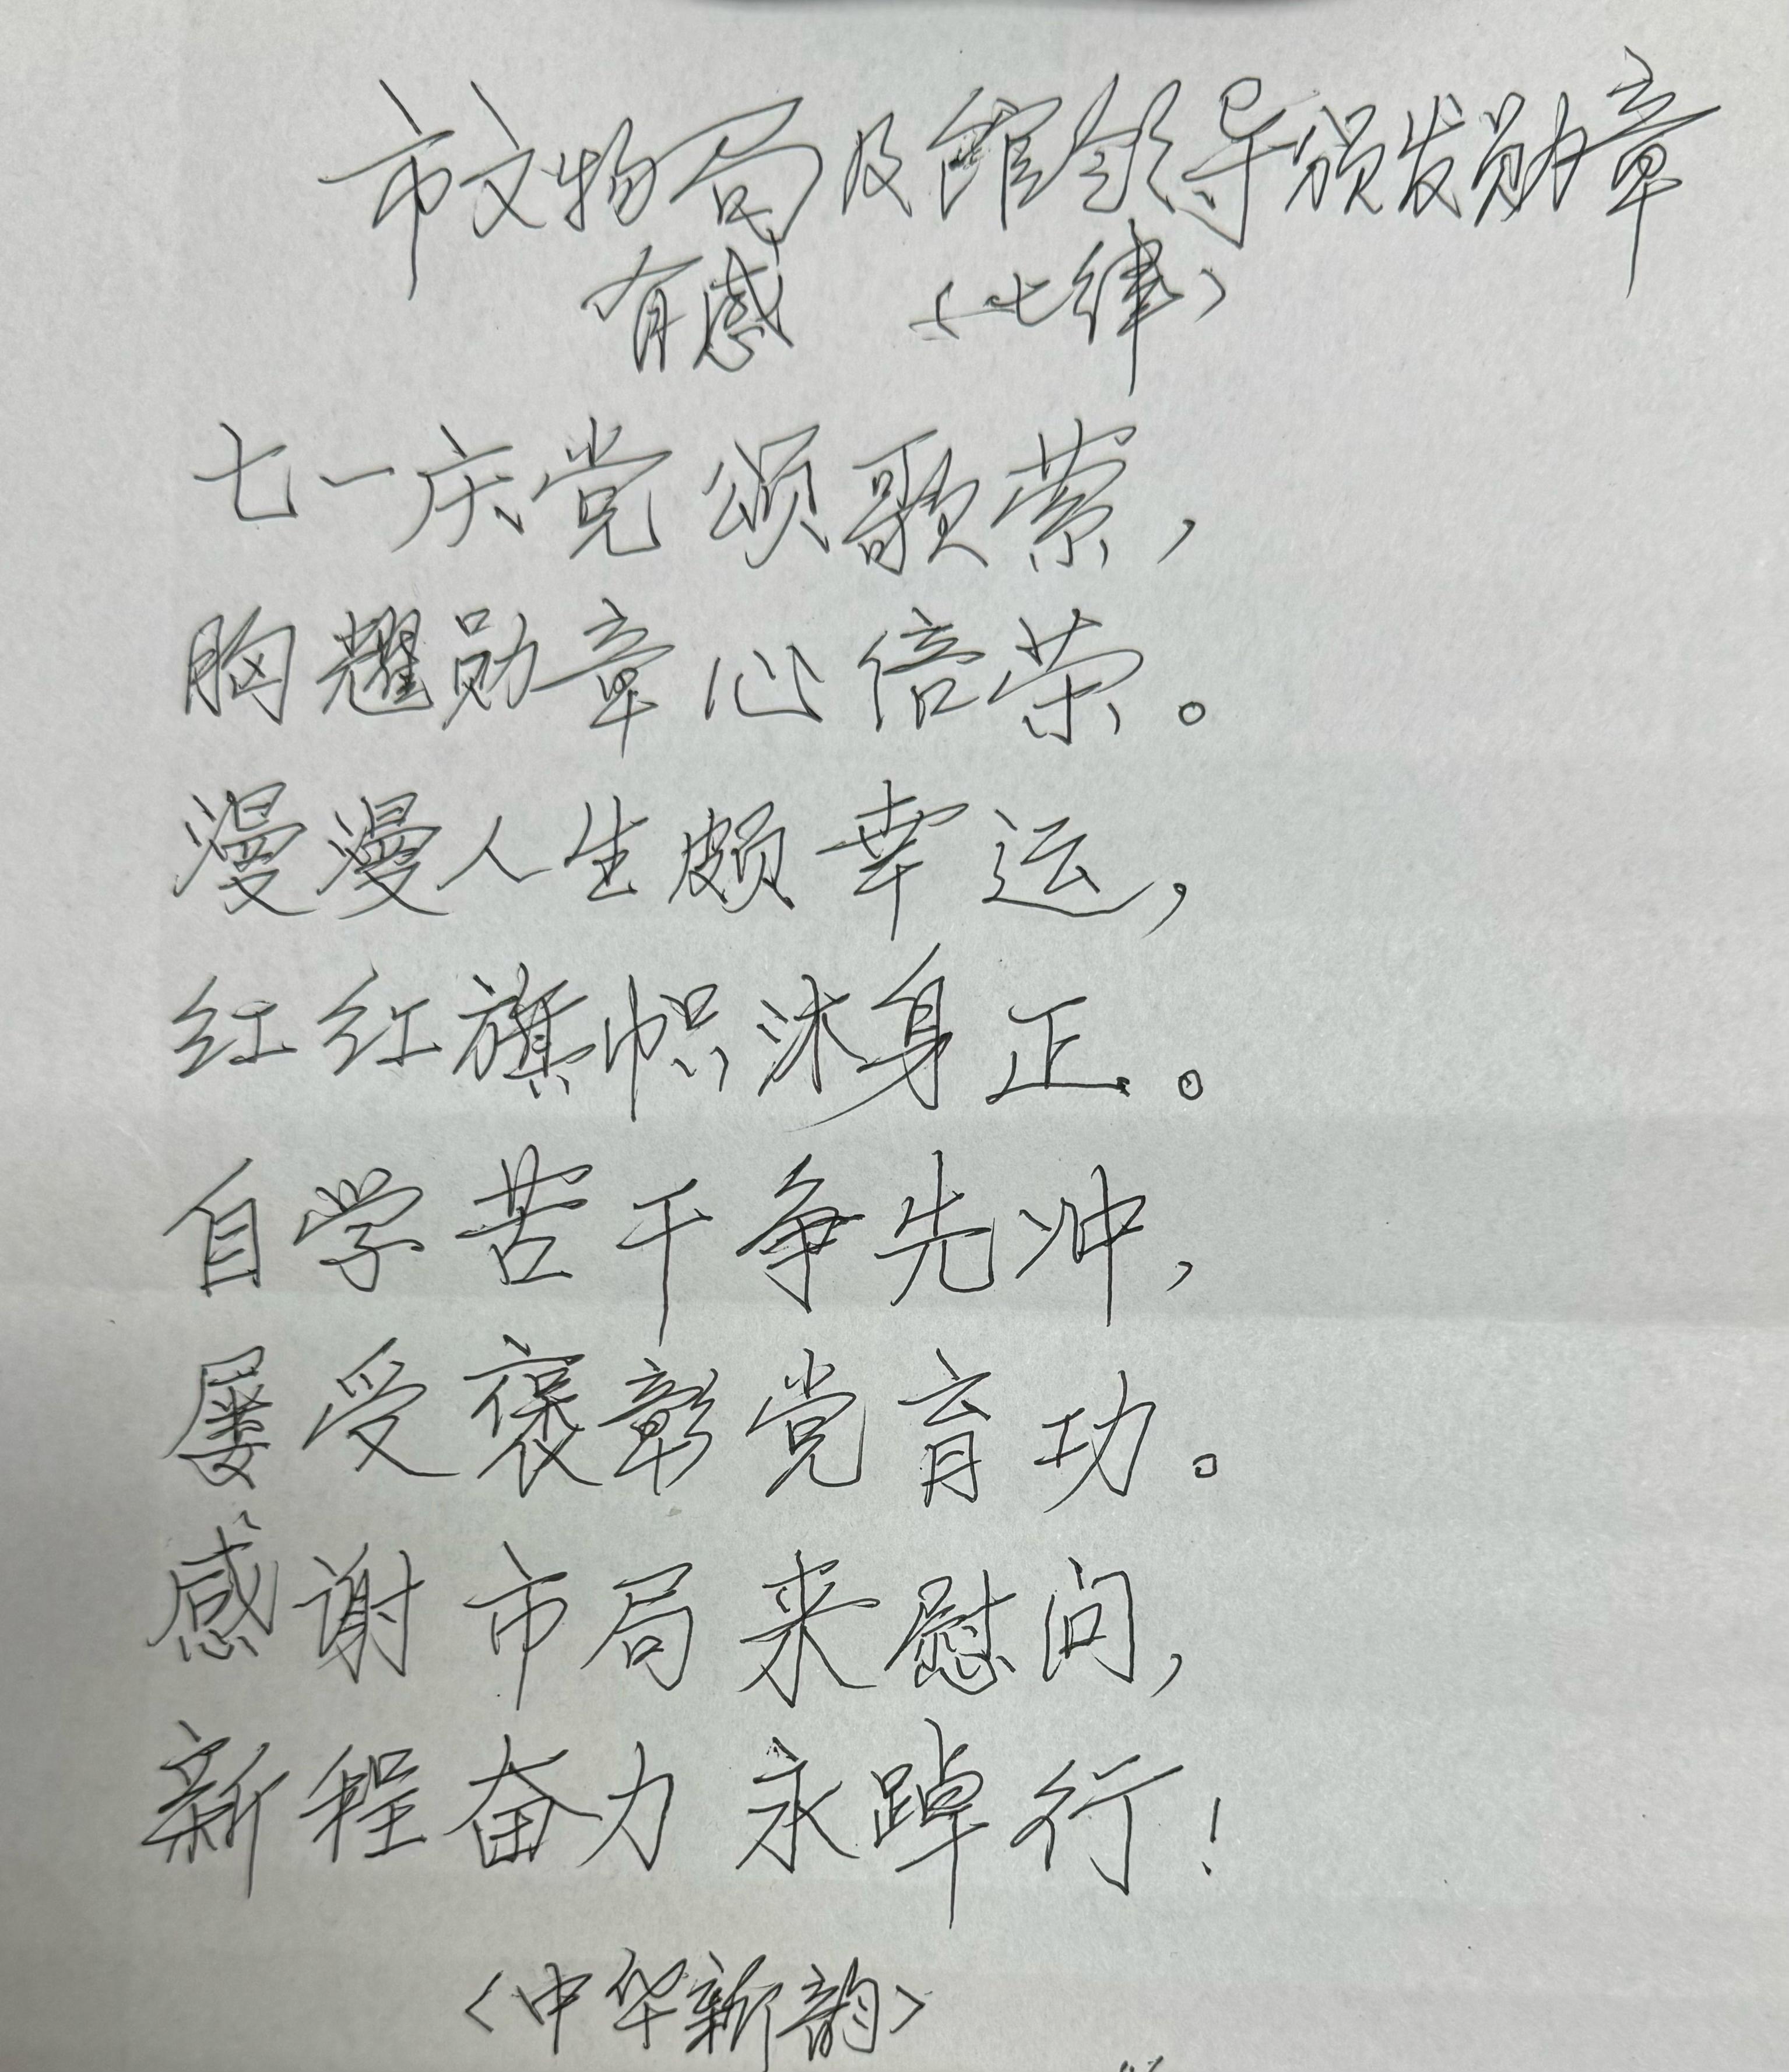 市文物局及馆领导颁发勋章
有感 〈七律〉
七一庆党颂歌萦，
胸耀勋章心倍荣。
漫漫人生颇幸运，
红红旗帜沐身正。
自学苦干争先冲，
屡受褒彰党育功。
感谢市局来慰问，
新程奋力永踔行！
〈中华新韵〉